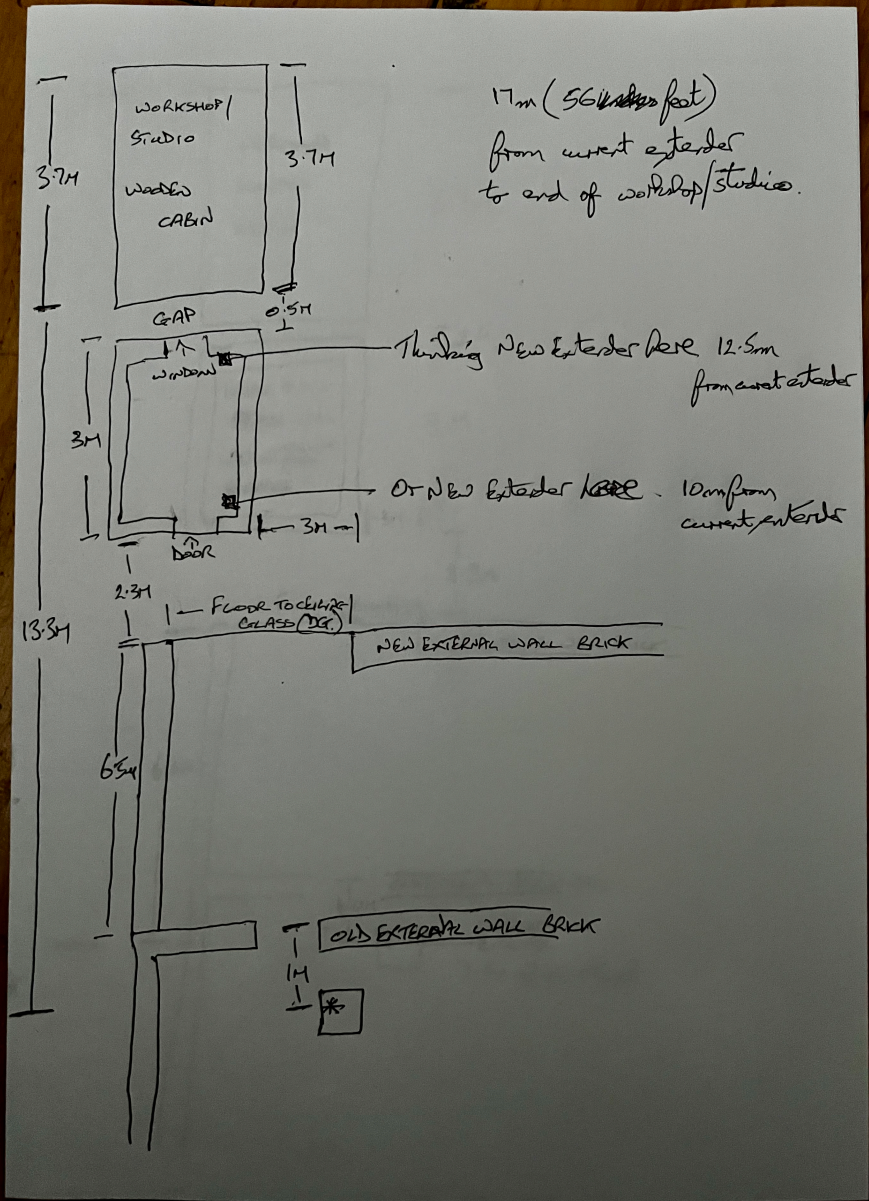 WORKSHOP/
STUDIO
WOODEN
CABIN
3.7M
3.7M
17m (56 feet)
from current extender
to end of workshop/studio.
GAP
0.5M
WINDOW
Thinking New Extender here 12.5m
from current extender
3M
Or New Extender here. 10m from
current extender
3M
DOOR
2.3M
FLOOR TO CEILING
GLASS (DG.)
13.3M
NEW EXTERNAL WALL BRICK
6.5M
OLD EXTERNAL WALL BRICK
1M
*